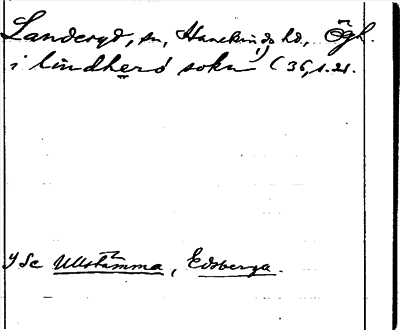 Landeryd, sn, Hanekinds hd., Ögl.
i lindhero sokn 1) (36, s. 21.
1) Se Ullstämma, Edsberga.